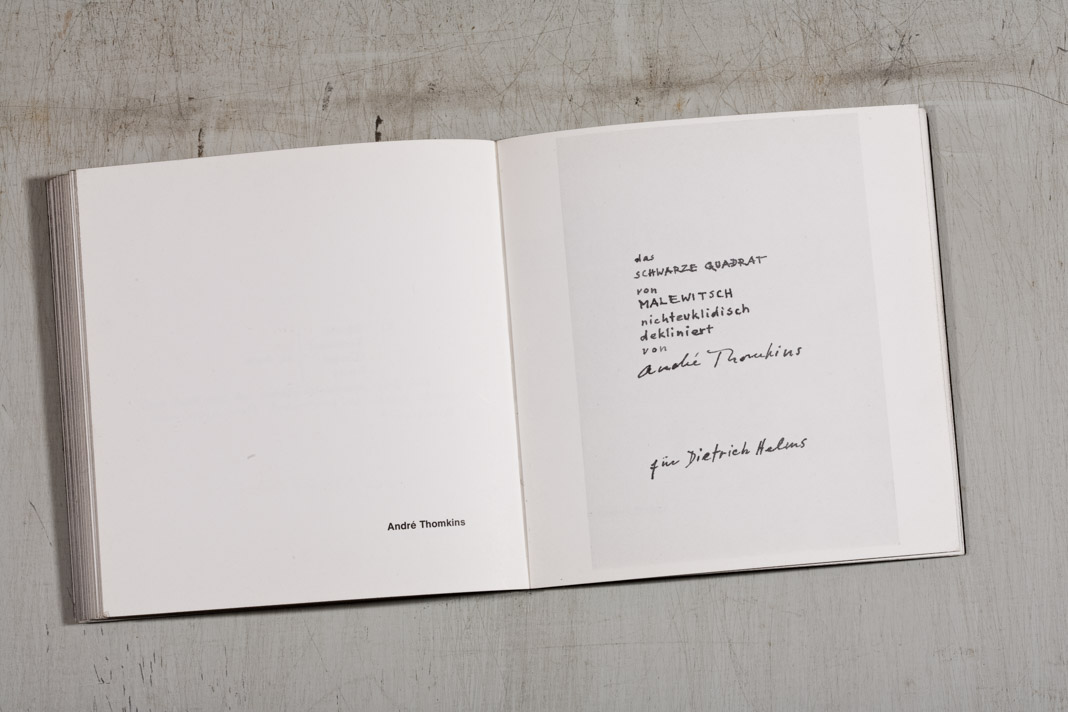 André Thomkins
das
SCHWARZE QUADRAT
von
MALEWITSCH
nichteuklidisch
dekliniert
von
André Thomkins
für Dietrich Helms